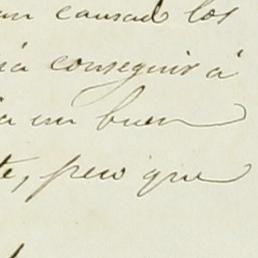 an causad los
ia conseguir á
a un buen
te, pero que